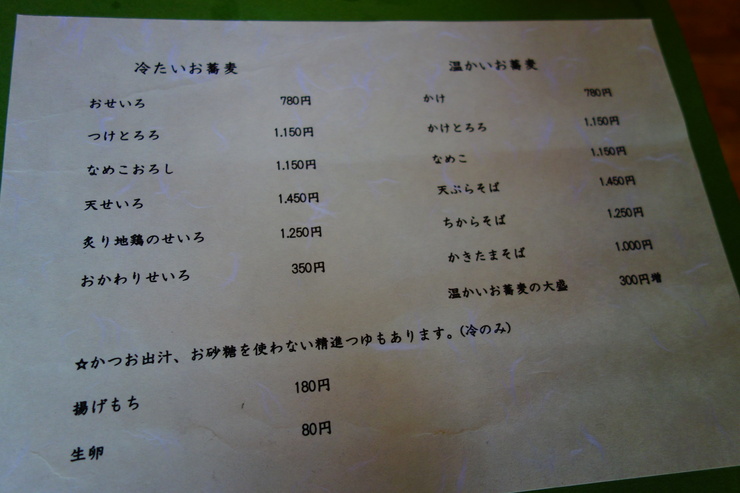 冷たいお蕎麦
おせいろ 780円
つけとろろ 1.150円
なめこおろし 1.150円
天せいろ 1.450円
炙り地鶏のせいろ 1.250円
おかわりせいろ 350円
温かいお蕎麦
かけ 780円
かけとろろ 1.150円
なめこ 1.150円
天ぷらそば 1.450円
ちからそば 1.250円
かきたまそば 1.000円
温かいお蕎麦の大盛 300円増
☆かつお出汁、お砂糖を使わない精進つゆもあります。(冷のみ)
揚げもち 180円
生卵 80円